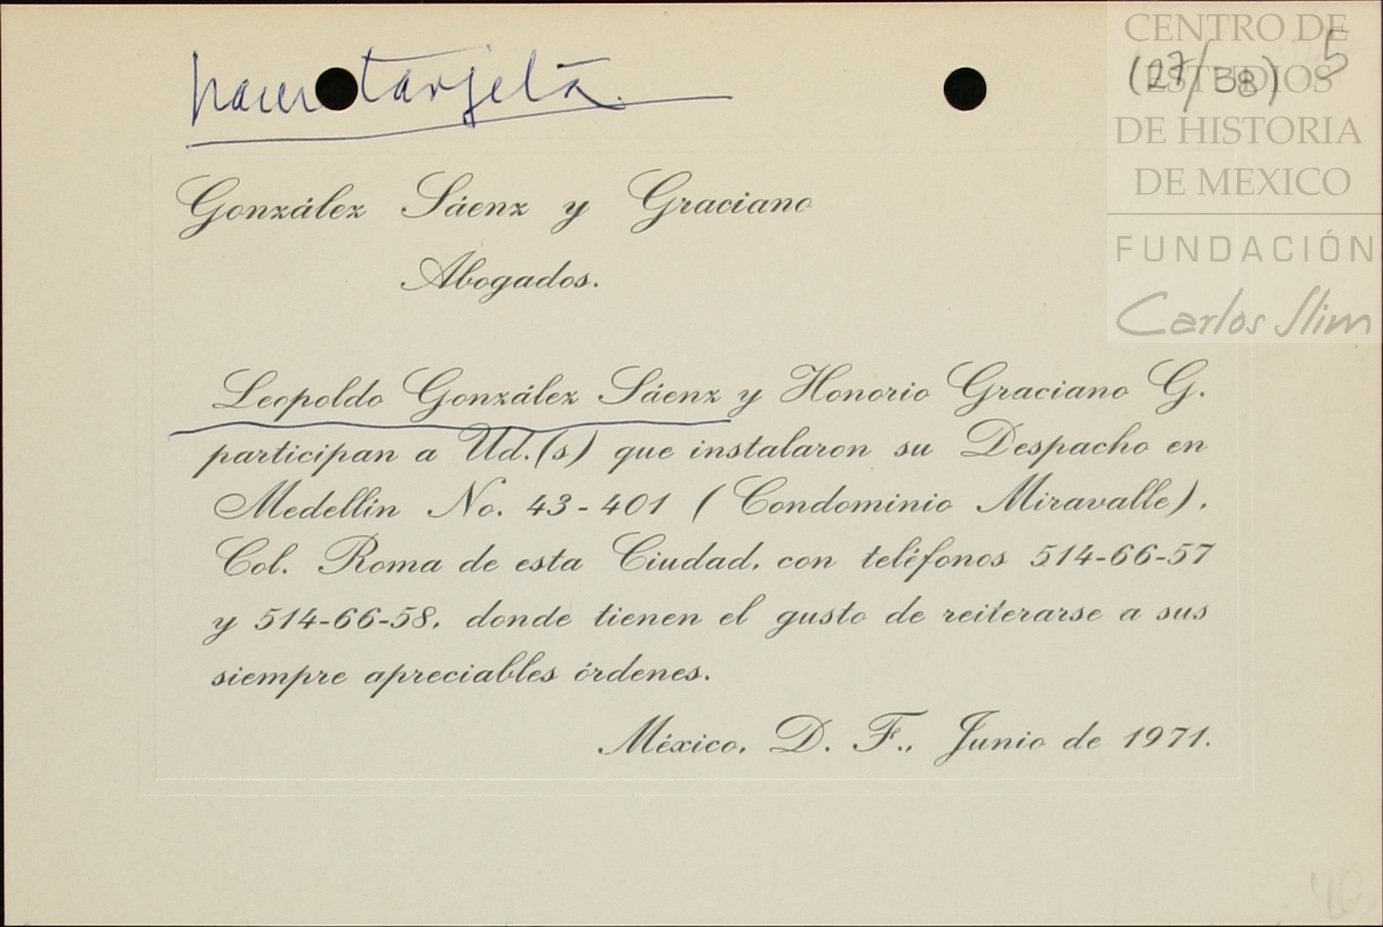 hacer tarjeta
(27/38) 5
CENTRO DE
ESTUDIOS
DE HISTORIA
DE MEXICO
FUNDACIÓN
Carlos Slim
González Sáenz y Graciano
Abogados.
Leopoldo González Sáenz y Honorio Graciano G.
participan a Ud.(s) que instalaron su Despacho en
Medellín No. 43-401 (Condominio Miravalle),
Col. Roma de esta Ciudad, con teléfonos 514-66-57
y 514-66-58, donde tienen el gusto de reiterarse a sus
siempre apreciables órdenes.
México, D. F., Junio de 1971.